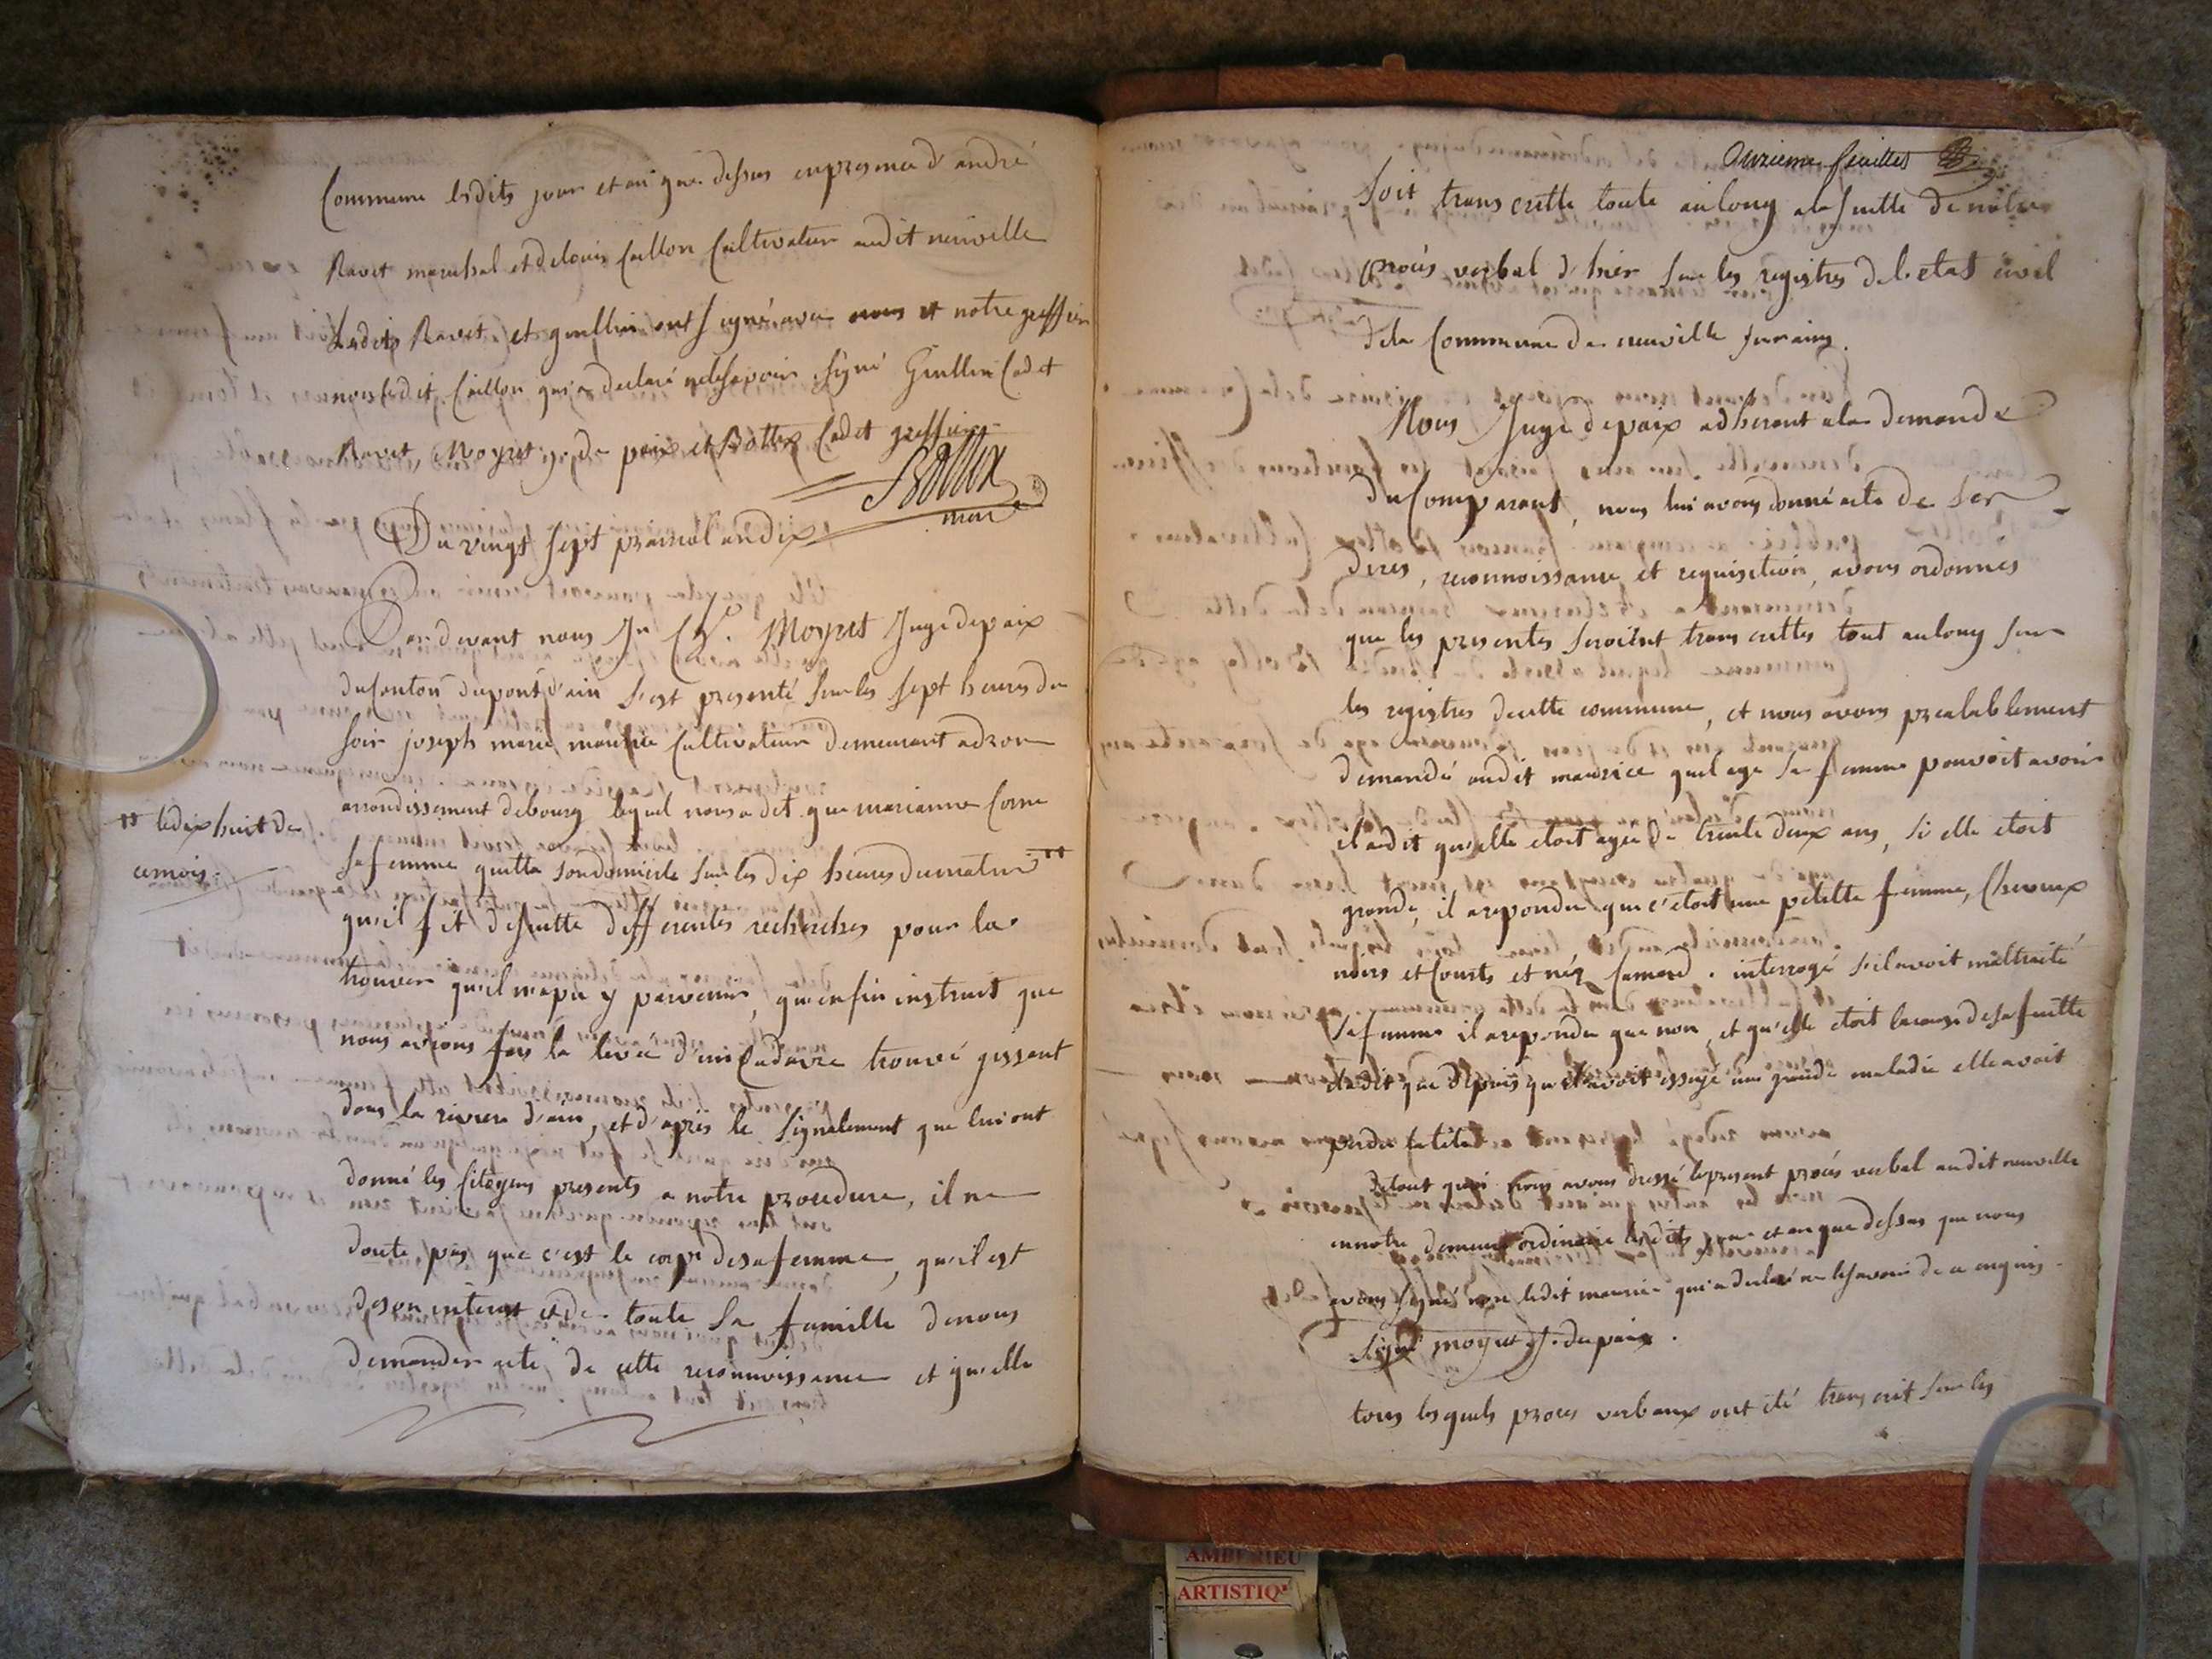 Commune lesdits jour et an que dessus en presence d'andré
Ravet marechal et de louis Caillon Cultivateur audit neuville
Lesdits Ravet et guillin ont signé avec nous et notre greffier
non ledit Caillon qui a declaré ne le savoir. signé Guillin Cadet
Ravet, Moyret j. de paix et Bottex Cadet greffier
Bottex
maire
Du vingt sept prairial an dix
Par devant nous Jn Ch. Moyret Juge de paix
du Canton du pont d'ain s'est presenté sur les sept heures du
soir joseph marie maurice Cultivateur demeurant a drom
arrondissement de bourg lequel nous a dit que marianne Corne
sa femme quitta son domicile sur les dix heures du matin
** le dix huit de
ce mois.
qu'il fit de suitte differentes recherches pour la
trouver qu'il n'a pu y parvenir, qu'enfin instruit que
nous avions fais la levée d'un Cadavre trouvé gissant
dans la riviere d'ain, et d'après le signalement que lui ont
donné les Citoyens presents a notre procedure, il ne
doute pas que c'est le corps de sa femme, qu'il est
de son interest et de toute sa famille de nous
demander acte de cette reconnoissance et qu'elle
Onzieme feuillet
soit transcritte toute au long a la suitte de notre
procès verbal d'hier sur les registres de l'etat civil
de la Commune de neuville sur ain.
Nous Juge de paix adherant a la demande
du Comparant, nous lui avons donné acte de ses
dires, reconnoissance et requisition, avons ordonnés
que les presentes seroient transcrittes tout au long sur
les registres de cette commune, et nous avons prealablement
demandé audit maurice quel age sa femme pouvoit avoir
il a dit qu'elle etoit agée de trente deux ans, si elle etoit
grande, il a repondu que c'etoit une petitte femme, Cheveux
noirs et Courts et néz Camard. interrogé s'il avoit maltraité
sa femme il a repondu que non, et qu'elle etoit la cause de sa fuitte
il a dit que depuis qu'elle avoit essuyé une grande maladie elle avoit
perdu la tête
de tout quoi nous avons dressé le present procès verbal audit neuville
en notre demeure ordinaire lesdits jour et an que dessus que nous
avons signés non ledit maurice qui a declaré ne le savoir de ce enquis.
signé moyret J. de paix.
tous lesquels proces verbaux ont été transcrit sur les
AMBERIEU
ARTISTIQ